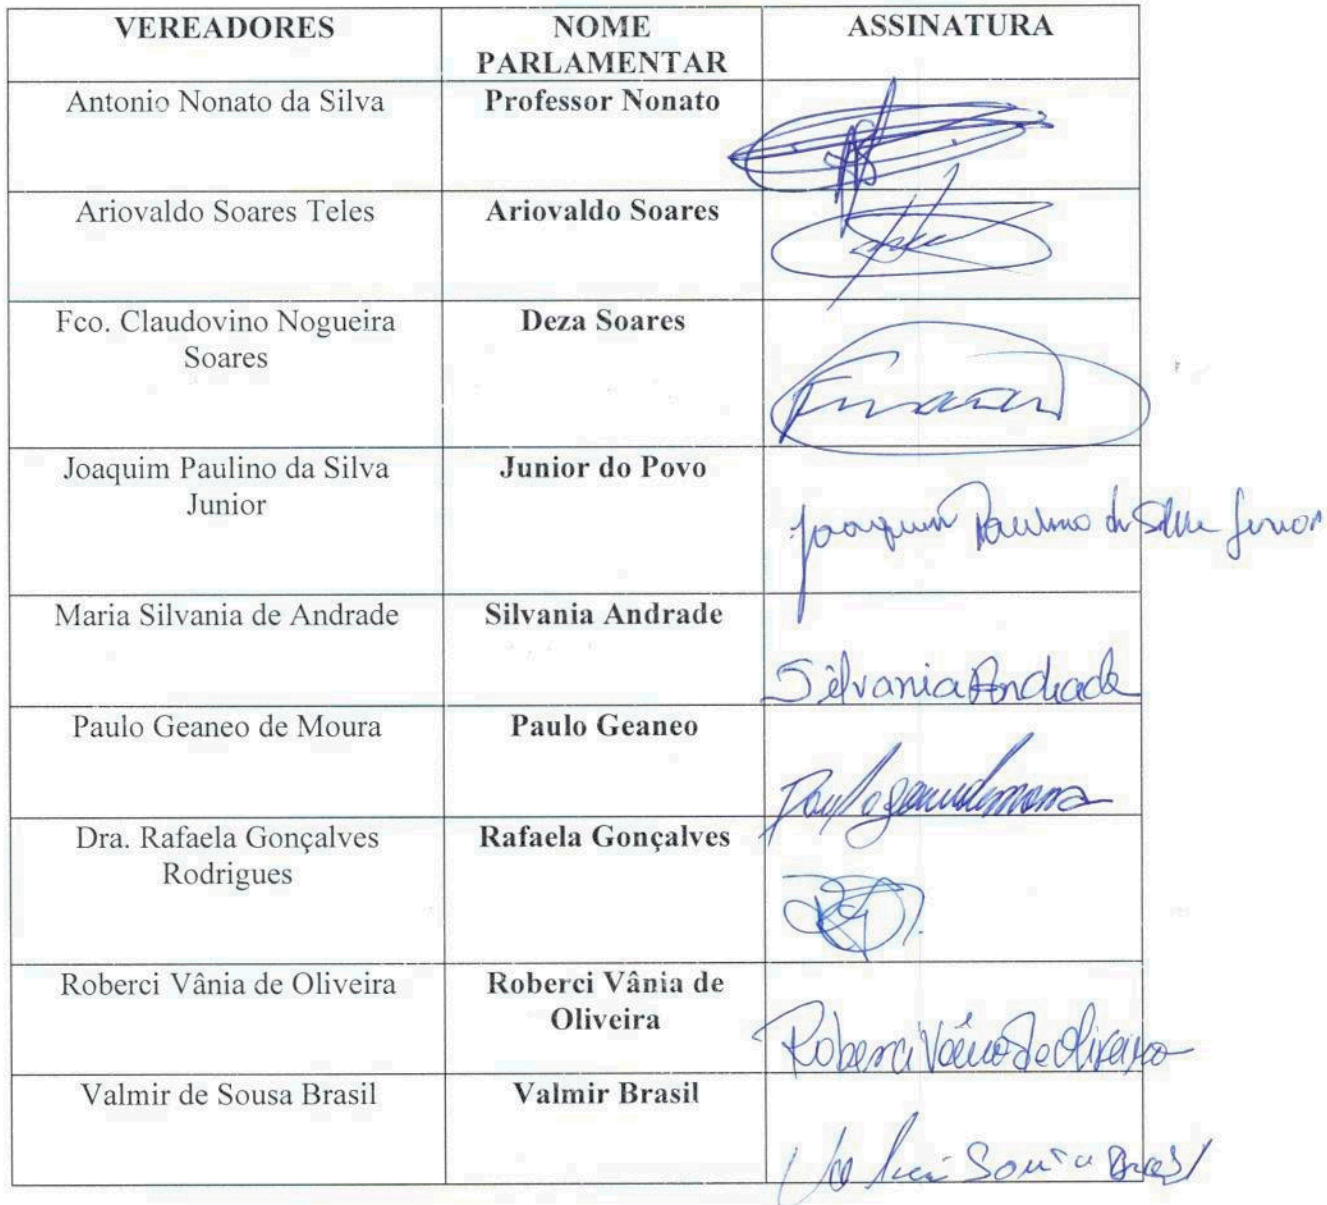 VEREADORES
NOME
PARLAMENTAR
ASSINATURA
Antonio Nonato da Silva
Professor Nonato
Ariovaldo Soares Teles
Ariovaldo Soares
Fco. Claudovino Nogueira
Soares
Deza Soares
Joaquim Paulino da Silva
Junior
Junior do Povo
Joaquim Paulino da Silva Junior
Maria Silvania de Andrade
Silvania Andrade
Silvania Andrade
Paulo Geaneo de Moura
Paulo Geaneo
Dra. Rafaela Gonçalves
Rodrigues
Rafaela Gonçalves
Roberci Vânia de Oliveira
Roberci Vânia de
Oliveira
Roberci Vânia de Oliveira
Valmir de Sousa Brasil
Valmir Brasil